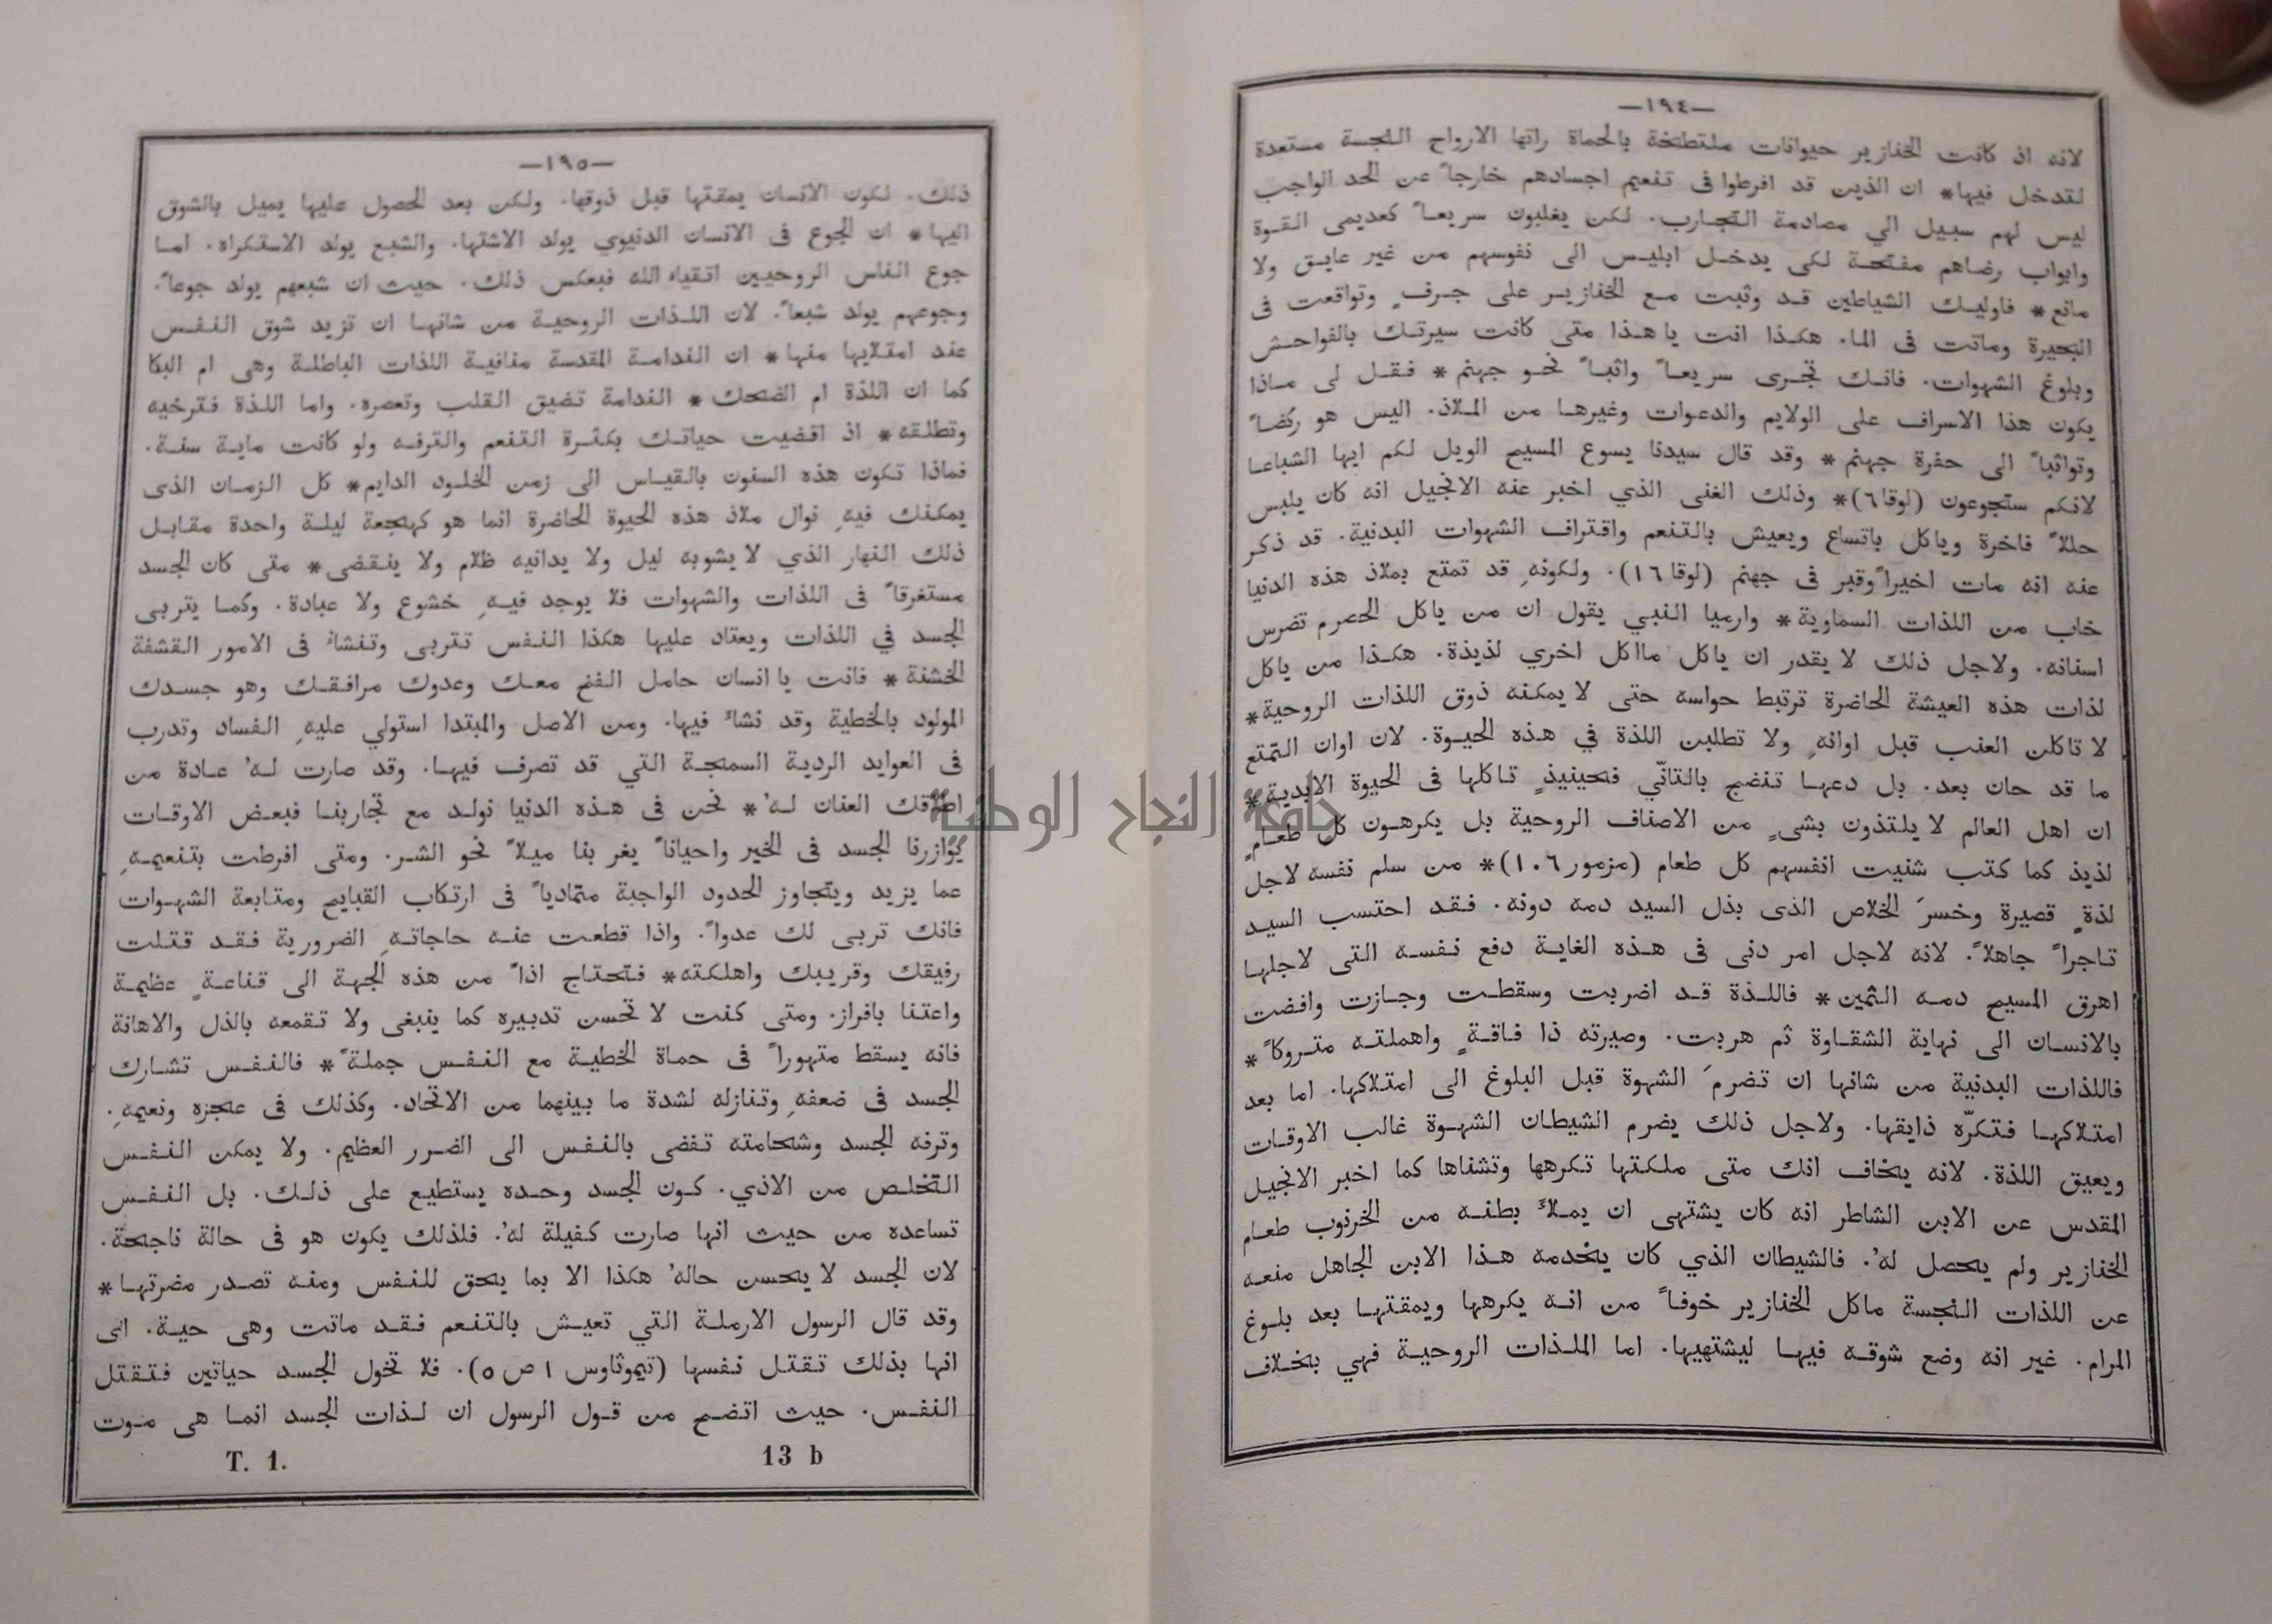 —١٩٤—
لانه اذ كانت الخنازير حيوانات ملتطخة بالحماة راتها الارواح النجسة مستعدة
لتدخل فيها* ان الذين قد افرطوا فى تنعيم اجسادهم خارجاً عن الحد الواجب
ليس لهم سبيل الي مصادمة التجارب. لكن يغلبون سريعاً كعديمى القوة
وابواب رضاهم مفتحة لكى يدخل ابليس الى نفوسهم من غير عايق ولا
مانع* فاوليك الشياطين قد وثبت مع الخنازير على جرفٍ وتواقعت فى
البحيرة وماتت فى الما. هكذا انت يا هذا متى كانت سيرتك بالفواحش
وبلوغ الشهوات. فانك تجرى سريعاً واثباً نحو جهنم* فقل لى ماذا
يكون هذا الاسراف على الولايم والدعوات وغيرها من الملاذ. اليس هو ركضاً
وتواثباً الى حفرة جهنم* وقد قال سيدنا يسوع المسيح الويل لكم ايها الشباعا
لانكم ستجوعون (لوقا٦)* وذلك الغنى الذي اخبر عنه الانجيل انه كان يلبس
حللاً فاخرة وياكل باتساع ويعيش بالتنعم واقتراف الشهوات البدنية. قد ذكر
عنه انه مات اخيراً وقبر فى جهنم (لوقا١٦). ولكونهِ قد تمتع بملاذ هذه الدنيا
خاب من اللذات السماوية* وارميا النبي يقول ان من ياكل الحصرم تضرس
اسنانه. ولاجل ذلك لا يقدر ان ياكل مااكل اخري لذيذة. هكذا من ياكل
لذات هذه العيشة الحاضرة ترتبط حواسه حتى لا يمكنه ذوق اللذات الروحية*
لا تاكلن العنب قبل اوانهِ ولا تطلبن اللذة في هذه الحيوة. لان اوان التمتع
ما قد حان بعد. بل دعها تنضج بالتانّي فحينيذٍ تاكلها فى الحيوة الابدية*
ان اهل العالم لا يلتذون بشىٍ من الاصناف الروحية بل يكرهون كل طعامٍ
لذيذ كما كتب شنيت انفسهم كل طعام (مزمور١٠٦)* من سلم نفسه لاجل
لذةٍ قصيرة وخسرَ الخلاص الذى بذل السيد دمه دونه. فقد احتسب السيد
تاجراً جاهلاً. لانه لاجل امر دنى فى هذه الغاية دفع نفسه التى لاجلها
اهرق المسيح دمه الثمين* فاللذة قد اضربت وسقطت وجازت وافضت
بالانسان الى نهاية الشقاوة ثم هربت. وصيرته ذا فاقةٍ واهملته متروكاً*
فاللذات البدنية من شانها ان تضرمَ الشهوة قبل البلوغ الى امتلاكها. اما بعد
امتلاكها فتكرّه ذايقها. ولاجل ذلك يضرم الشيطان الشهوة غالب الاوقات
ويعيق اللذة. لانه يخاف انك متى ملكتها تكرهها وتشناها كما اخبر الانجيل
المقدس عن الابن الشاطر انه كان يشتهى ان يملاً بطنه من الخرنوب طعام
الخنازير ولم يحصل لهُ. فالشيطان الذي كان يخدمه هذا الابن الجاهل منعه
عن اللذات النجسة ماكل الخنازير خوفاً من انه يكرهها ويمقتها بعد بلوغ
المرام. غير انه وضع شوقه فيها ليشتهيها. اما الملذات الروحية فهي بخلاف
—١٩٥—
ذلك. لكون الانسان يمقتها قبل ذوقها. ولكن بعد الحصول عليها يميل بالشوق
اليها* ان الجوع فى الانسان الدنيوي يولد الاشتها. والشبع يولد الاستكراه. اما
جوع الناس الروحيين اتقياء الله فبعكس ذلك. حيث ان شبعهم يولد جوعاً.
وجوعهم يولد شبعاً. لان اللذات الروحية من شانها ان تزيد شوق النفس
عند امتلايها منها* ان الندامة المقدسة منافية اللذات الباطلة وهى ام البكا
كما ان اللذة ام الضحك* الندامة تضيق القلب وتعصره. واما اللذة فترخيه
وتطلقه* اذ اقضيت حياتك بكثرة التنعم والترفه ولو كانت ماية سنة.
فماذا تكون هذه السنون بالقياس الى زمن الخلود الدايم* كل الزمان الذى
يمكنك فيهِ نوال ملاذ هذه الحيوة الحاضرة انما هو كهجعة ليلة واحدة مقابل
ذلك النهار الذي لا يشوبه ليل ولا يدانيه ظلام ولا ينقضى* متى كان الجسد
مستغرقاً فى اللذات والشهوات فلا يوجد فيهِ خشوع ولا عبادة. وكما يتربى
الجسد في اللذات ويعتاد عليها هكذا النفس تتربى وتنشاُ فى الامور القشفة
الخشنة* فانت يا انسان حامل الفخ معك وعدوك مرافقك وهو جسدك
المولود بالخطية وقد نشاَ فيها. ومن الاصل والمبتدا استولي عليهِ الفساد وتدرب
فى العوايد الردية السمجة التي قد تصرف فيها. وقد صارت لهُ عادة من
اطلاقك العنان لهُ* نحن فى هذه الدنيا نولد مع تجاربنا فبعض الاوقات
يُوازرنا الجسد فى الخير واحياناً يغر بنا ميلاً نحو الشر. ومتى افرطت بتنعيمهِ
عما يزيد ويتجاوز الحدود الواجبة متمادياً فى ارتكاب القبايح ومتابعة الشهوات
فانك تربى لك عدواً. واذا قطعت عنه حاجاتهِ الضرورية فقد قتلت
رفيقك وقريبك واهلكته* فتحتاج اذاً من هذه الجهة الى قناعةٍ عظيمة
واعتنا بافراز. ومتى كنت لا تحسن تدبيره كما ينبغى ولا تقمعه بالذل والاهانة
فانه يسقط متهوراً فى حماة الخطية مع النفس جملةً* فالنفس تشارك
الجسد فى ضعفهِ وتنازله لشدة ما بينهما من الاتحاد. وكذلك فى عجزه ونعيمهِ.
وترفه الجسد وشحامته تفضى بالنفس الى الضرر العظيم. ولا يمكن النفس
التخلص من الاذي. كون الجسد وحده يستطيع على ذلك. بل النفس
تساعده من حيث انها صارت كفيلة لهُ. فلذلك يكون هو فى حالة ناجحة.
لان الجسد لا يحسن حالهُ هكذا الا بما يحق للنفس ومنه تصدر مضرتها*
وقد قال الرسول الارملة التي تعيش بالتنعم فقد ماتت وهى حية. اى
انها بذلك تقتل نفسها (تيموثاوس ١ ص ٥). فلا تخول الجسد حياتين فتقتل
النفس. حيث اتضح من قول الرسول ان لذات الجسد انما هى موت
T. 1. 13 b
جامعة النجاح الوطنية